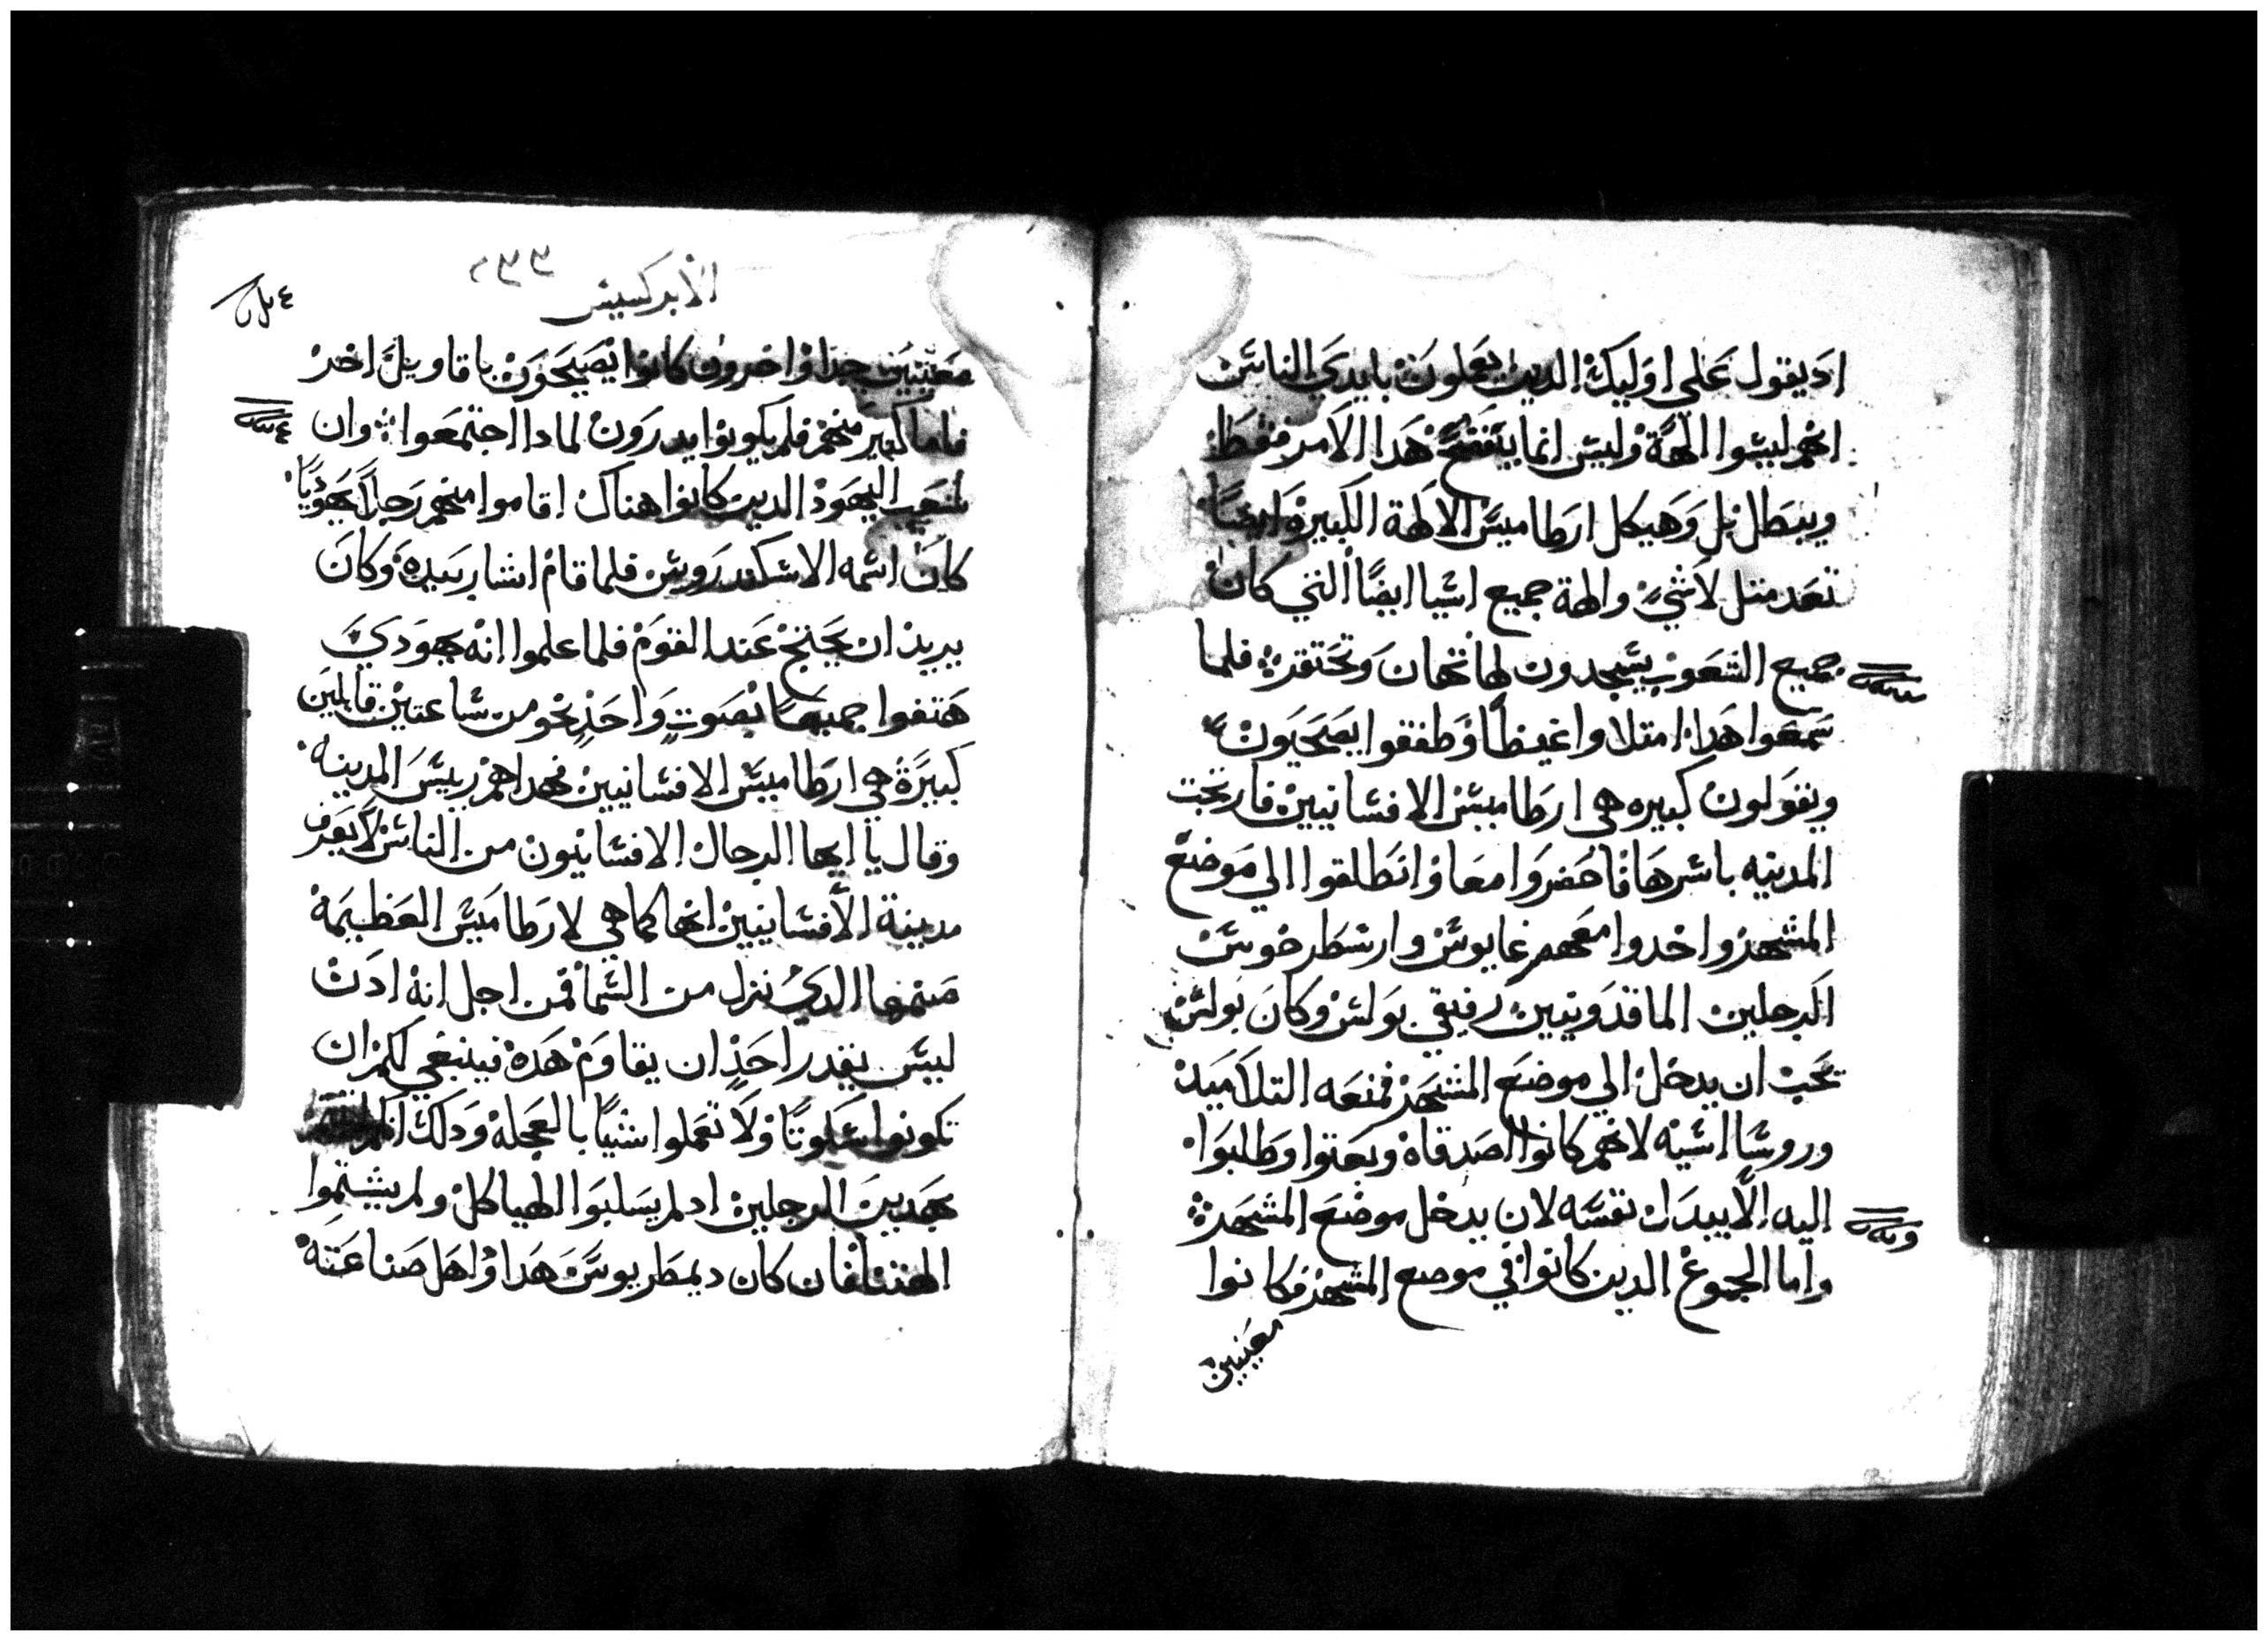 اد يقول على اوليك الدين يعلون بايدي الناس
انهم ليسوا الهة وليس انما يتفضح هدا الامر فقط
ويبطل بل وهيكل ارطاميس الالهة الكبيرة ايضًا
تعد متل لا شيء والهة جميع اشيا ايضًا التي كان
جميع الشعوب يسجدون لها تهان وتحتقر فلما
سمعوا هدا امتلاوا غيظًا وطفقوا يصيحون
ويقولون كبيره هي ارطاميس الافسانيين فارتجت
المدينه باسرها فاحضروا معا وانطلقوا الي موضع
المشهد واخدوا معهم غايوس وارسطرخوس
الرجلين الماقدونيين رفيقي بولس وكان بولس
يحب ان يدخل الي موضع المشهد فمنعه التلاميد
وروسا اسيه لانهم كانوا اصدقاه وبعتوا وطلبوا
اليه الا يبدل نفسه لان يدخل موضع المشهد
واما الجموع الدين كانوا في موضع المشهد فكانوا
معنيين
الابركسيس
معنيين جدا واخرون كانوا يصيحون باقاويل اخر
فاما كتير منهم فلم يكونوا يدرون لمادا اجتمعوا وان
شعب اليهود الدين كانوا هناك اقاموا منهم رجلًا يهوديًا
كان اسمه الاسكندروس فلما قام اشار بيده وكان
يريد ان يحتج عند القوم فلما علموا انه يهودي
هتفوا جميعًا بصوت واحد نحو من ساعتين قايلين
كبيرة هي ارطاميس الافسانيين فهداهم رييس المدينه
وقال يا ايها الرجال الافسانيون من الناس لا يعرف
مدينة الافسانيين انها كما هي لارطاميس العظيمة
صنمها الدي نزل من السما فمن اجل انه ادن
ليس يقدر احد ان يقاوم هده فينبغي لكم ان
تكونوا سكوتًا ولا تعملوا شيًا بالعجله ودلك انكم
بهدين الرجلين اد لم يسلبوا الهياكل ولم يشتموا
الهتنا فان كان ديمطريوس هدا واهل صناعته